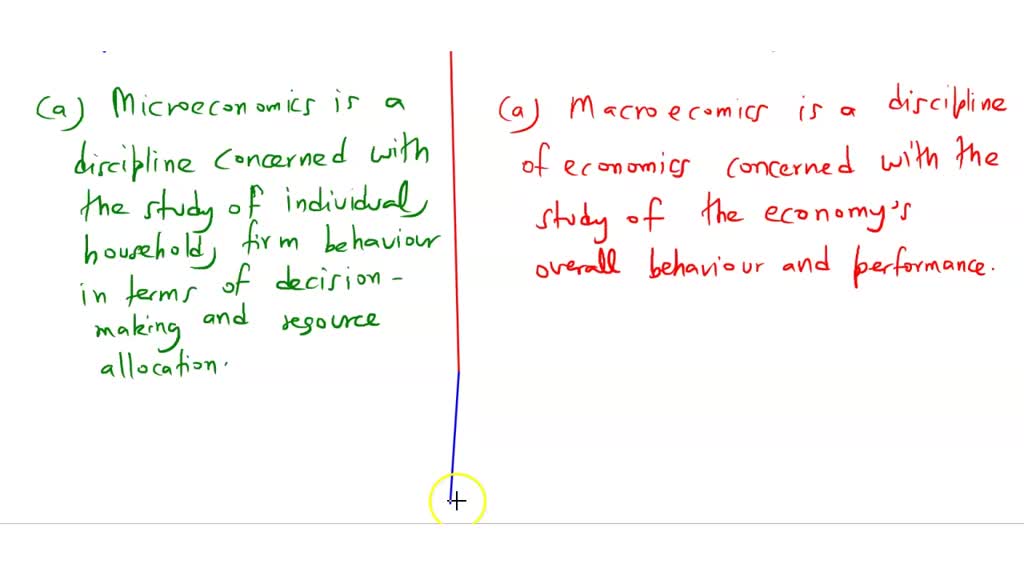 (a) Microeconomics is a
discipline concerned with
the study of individual,
household, firm behaviour
in terms of decision-
making and resource
allocation.
(a) Macroecomics is a discipline
of economics concerned with the
study of the economy's
overall behaviour and performance.